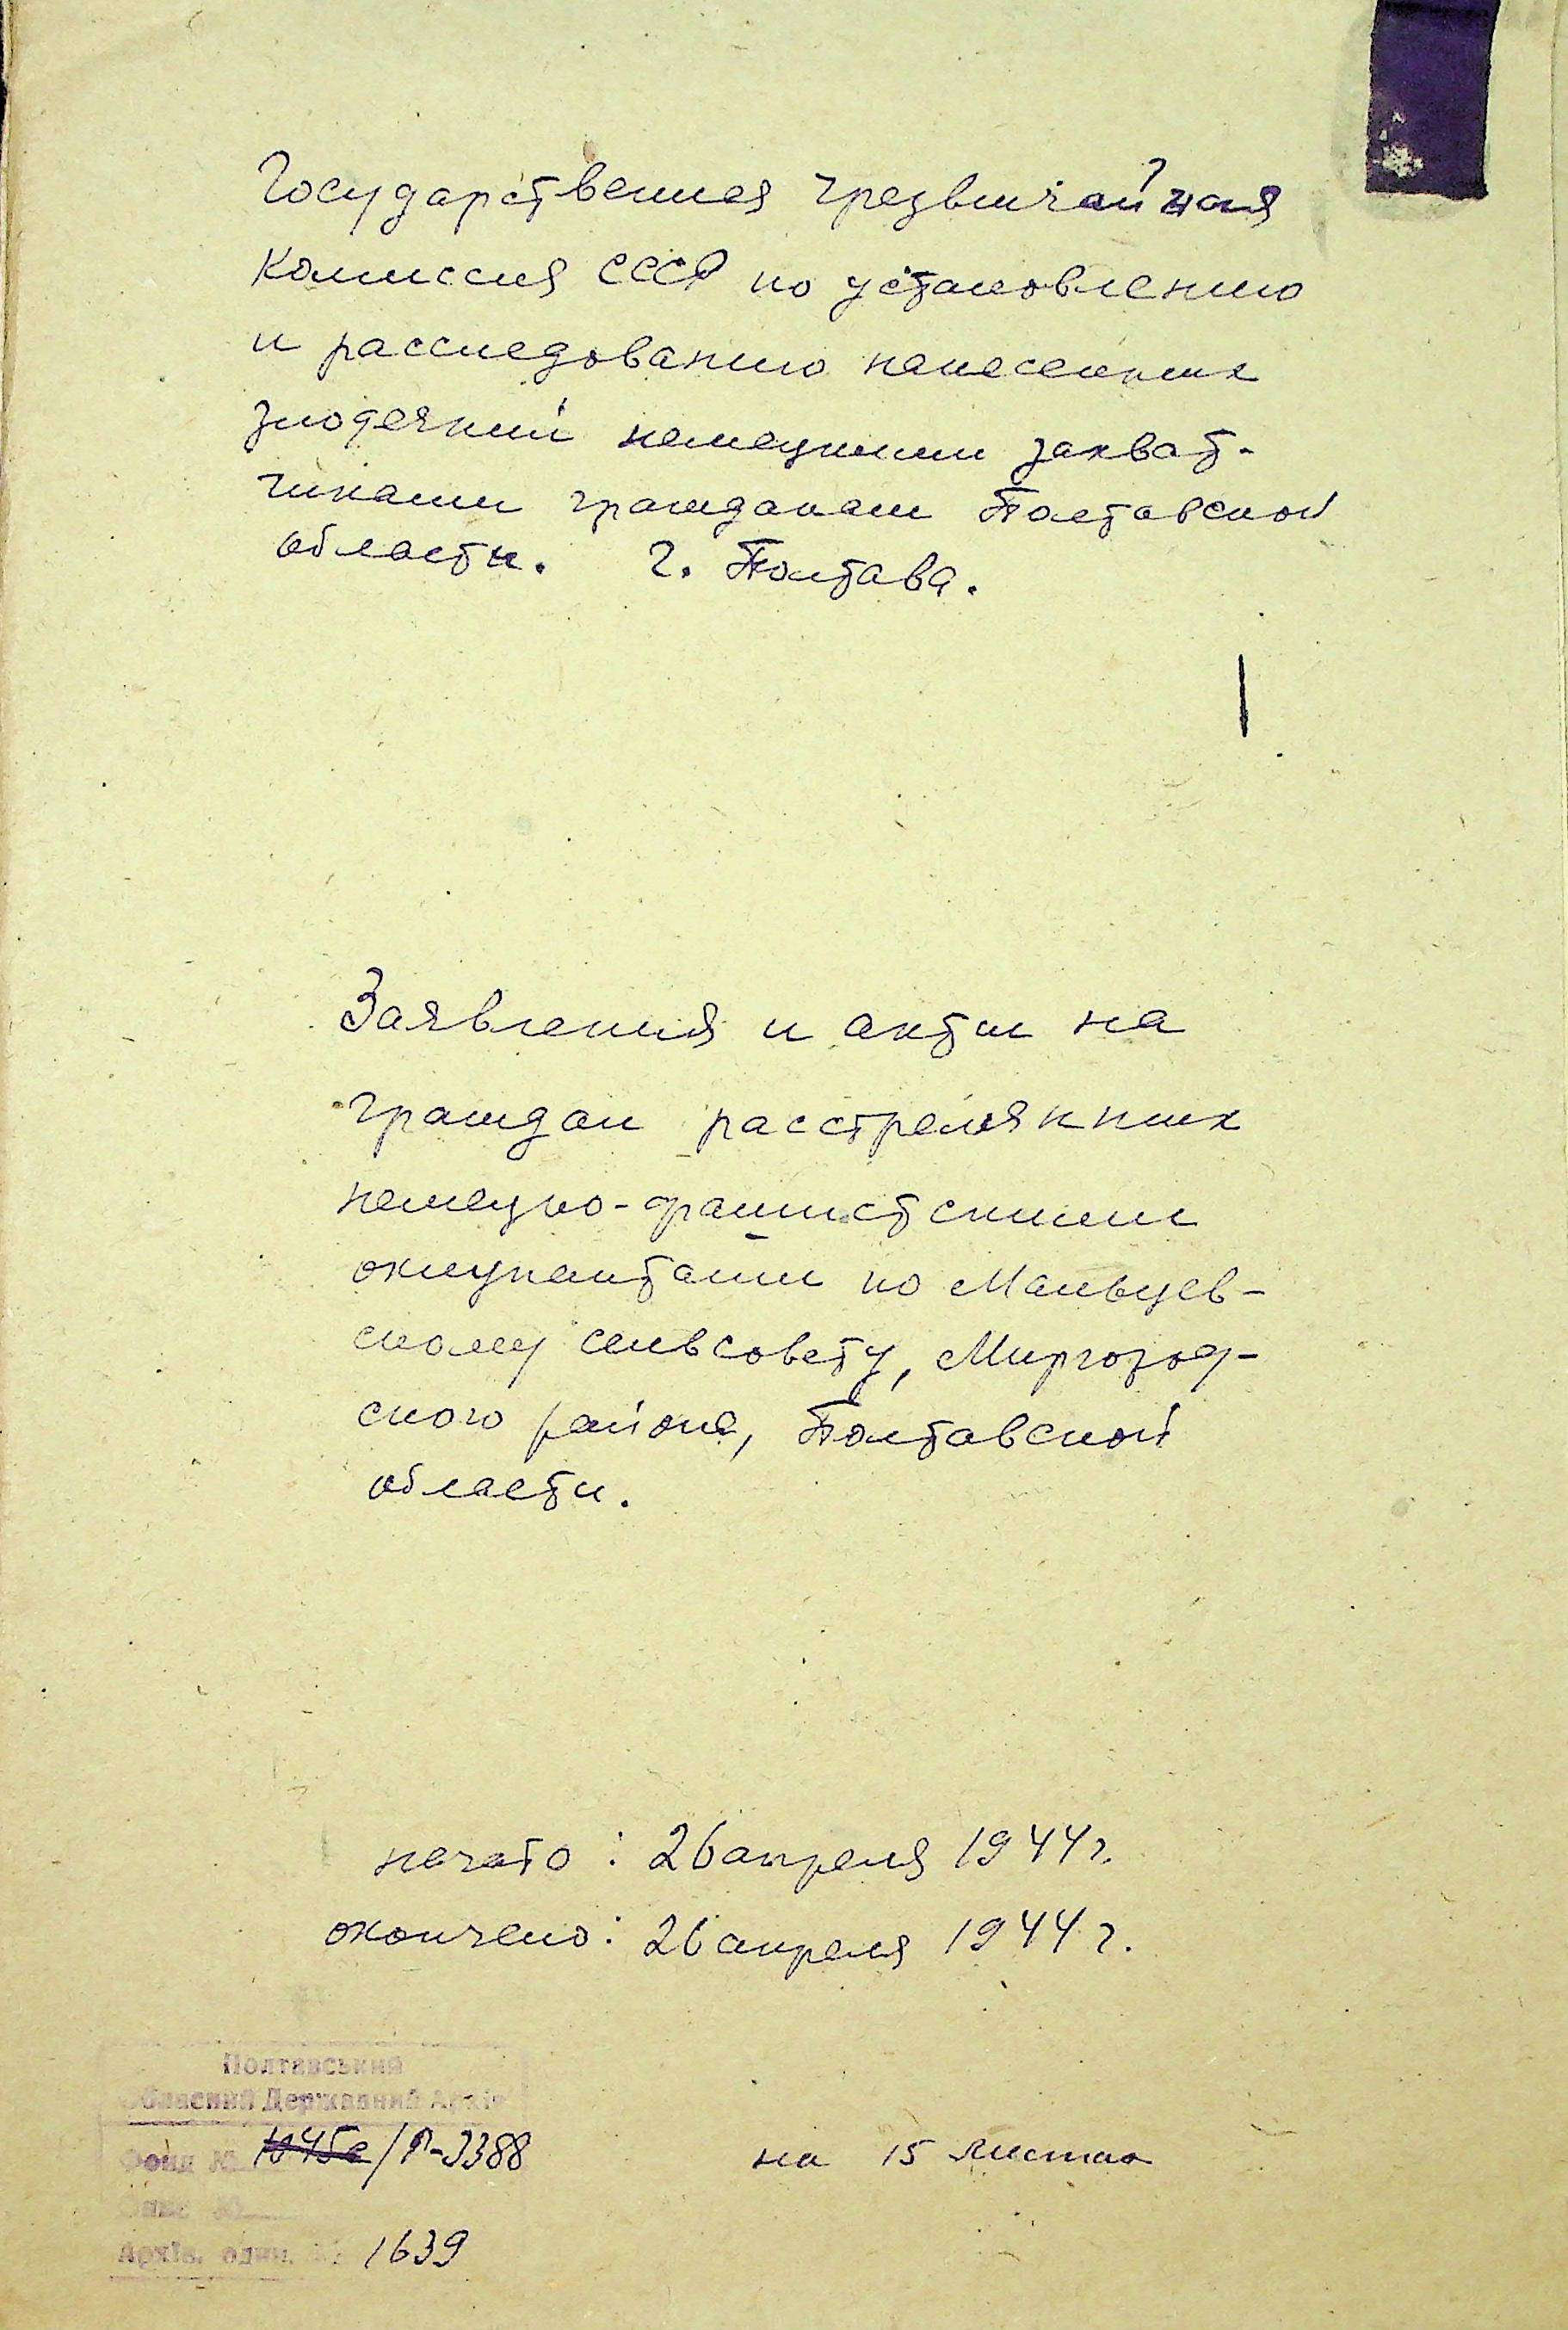 Государственная чрезвычайная
Комиссия СССР по установлению
и расследованию нанесенных
злодеяний немецкими захват-
чиками гражданам Полтавской
области. г. Полтава.
Заявления и акты на
граждан расстрелянных
немецко-фашистскими
окупантами по Мальцев-
скому сельсовету, Миргород-
ского района, Полтавской
области.
начато: 26 апреля 1944 г.
окончено: 26 апреля 1944 г.
Полтавський
Обласний Державний Архів
Фонд № /Р-3388
на 15 листах
Опис №
Архів. один. № 1639